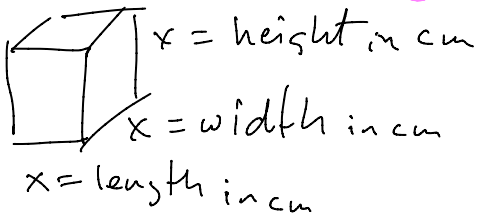 x = height in cm
x = width in cm
x = length in cm